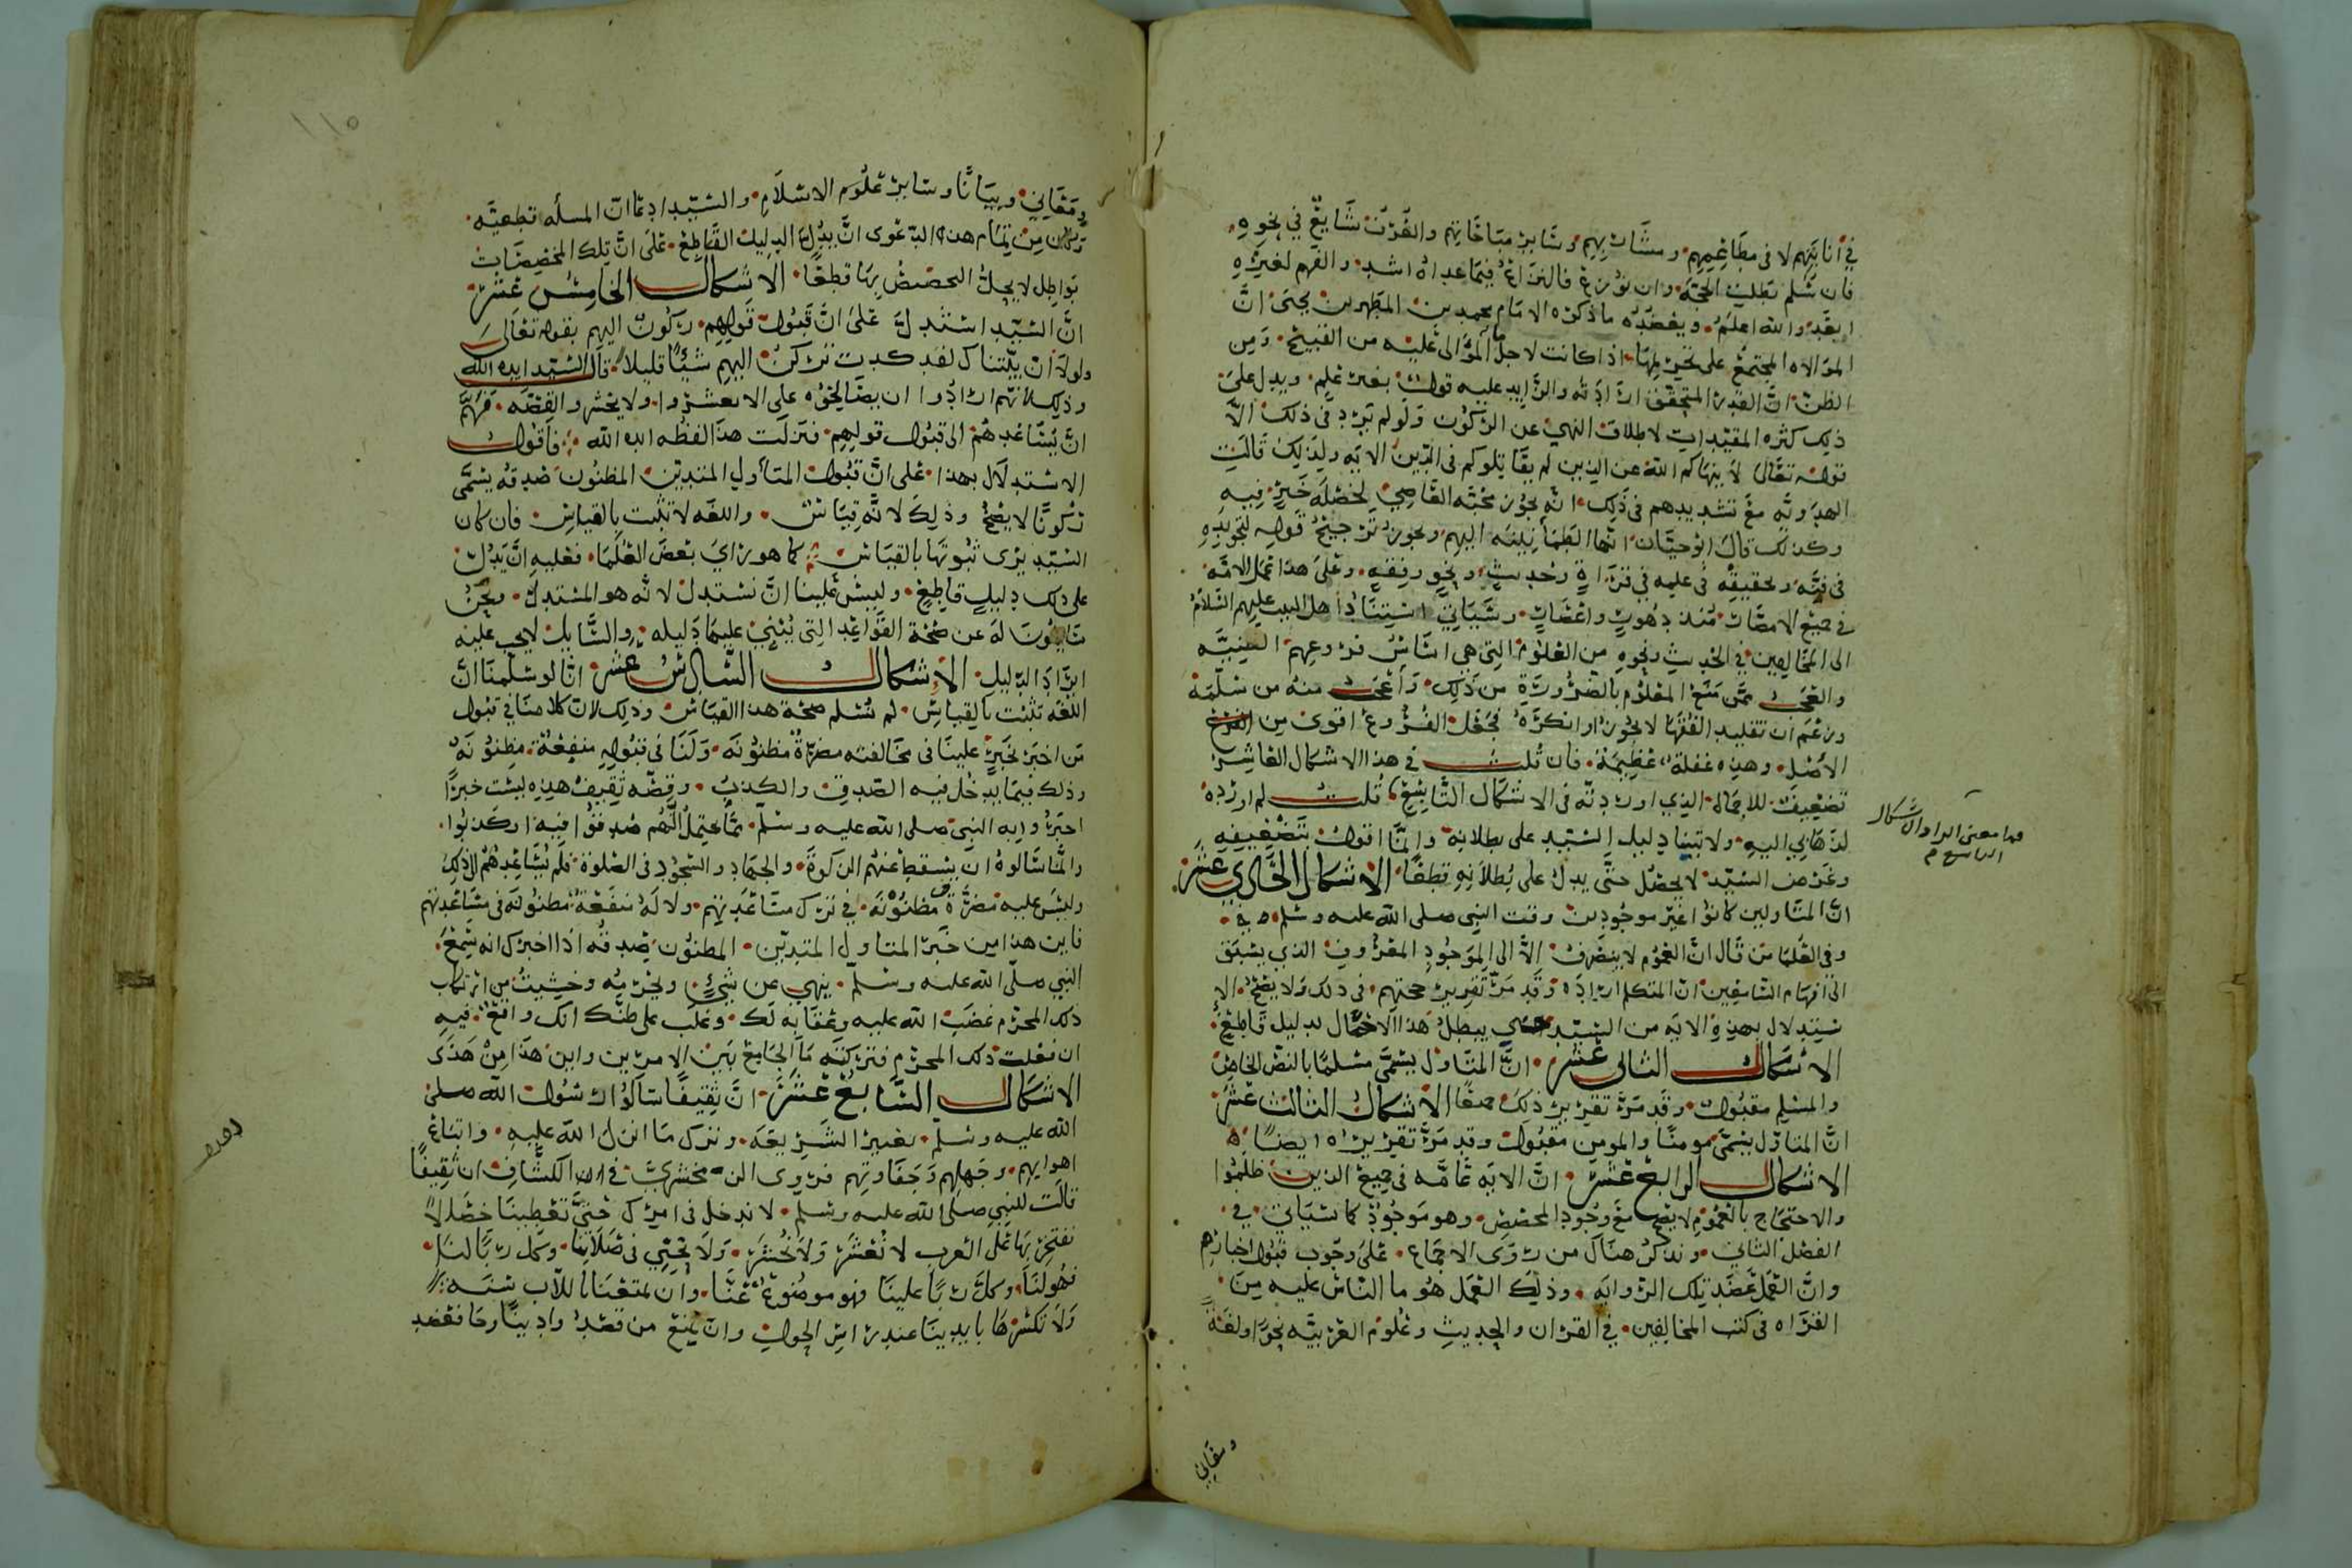 في أنابتهم لا في مطاعمهم ومشاربهم وسائر مباحاتهم والفرق شايع في نحوه
فان سلم بطلت الحجة وان نوزع فالنزاع فيما عداه اشد والفهم لغيره
ابعد والله اعلم ويعضده ما ذكره الامام محمد بن المطهر بن يحيى ان
الموالاه المجتمع على تحريمها اذا كانت لاجل ما المؤالى عليه من القبيح ومن
الظن ان القدر المتحقق ارادته والزايد عليه قول بغير علم ويدل على
ذلك كثره المقيدات لاطلاق النهي عن الركون ولو لم يرد في ذلك الا
قوله تعالى لا ينهاكم الله عن الذين لم يقاتلوكم في الدين الايه ولذلك قالت
الهدويه مع تشديدهم في ذلك انه يجوز محبه العاصي لخصله خير فيه
وكذلك قال ابو حيان انها الطمأنينه اليهم ويجوز ترجيح قوله لتجويده
في فنه وتحقيقه في علمه في قرااة وحديث ونحو رفقه وعلى هذا عمل الامه
في جميع الامصار منذ دهور واعصار وسياتي استناد اهل البيت عليهم السلام
الى المخالفين في الحديث ونحوه من العلوم التي هي اساس فروعهم العينيه
والعجب ممن منع المعلوم بالضرورة من ذلك واعجب منه من سلمه
وزعم ان تقليد الفقها لا يجوز او انكره فجعل الفروع اقوى من
الاصل وهذه غفلة عظيمة فان قلت في هذا الاشكال العاشر
تضعيف للاجماع الذي اوردته في الاشكال التاسع قلت لم اورده
لذهابي اليه ولا تبينا دليل السيد على بطلانه وانما اقول بتضعيفه
وغرض السيد لا يحصل حتى يدل على بطلانه قطعا الاشكال الحادي عشر
ان المتاولين كانوا غير موجودين وقت النبي صلى الله عليه وسلم
وفي العلما من قال ان العموم لا ينصرف الا الى الموجود المعروف الذي يسبق
الى افهام السامعين ان المتكلم اراده وقد مر تقرير حجتهم في ذلك ولا يصح الا
ستدلال بهذه الايه من السيد حتى يبطل هذا الاحتمال بدليل قاطع
الاشكال الثاني عشر ان المتاول يسمى مسلما بالنص الخاص
والمسلم مقبول وقد مر تقرير ذلك معا الاشكال الثالث عشر
ان المتاول يسمى مومنا والمومن مقبول وقد مر تقريره ايضا
الاشكال الرابع عشر ان الايه عامه في جميع الذين ظلموا
والاحتجاج بالعموم لا يصح مع وجود المخصص وهو موجود كما سياتي في
الفصل الثاني ونذكر هناك من روى الاجماع على وجوب قبول اخبارهم
وان العمل عضد تلك الروايه وذلك العمل هو ما الناس عليه من
القراه في كتب المخالفين في القران والحديث وعلوم العربيه نحوا ولغة
هذا معنى ايراد الاشكال
التاسع م
ومعاني
ومعاني وبيانا وسائر علوم الاسلام والسيد ادعا ان المسله قطعيه
وكان من تمام هذه الدعوى ان يدل الدليل القاطع على ان تلك المخصصات
بواطل لا يحل التخصيص بها قطعا الاشكال الخامس عشر
ان السيد استدل على ان قبول قولهم ركون اليهم بقوله تعالى
ولولا ان ثبتناك لقد كدت تركن اليهم شيئا قليلا قال السيد ايده الله
وذلك لانهم ارادوا ان يصالحوه على الا يعشروا ولا يحشروالقصه فهم
ان يساعدهم الى قبول قولهم فنزلت هذا لفظه ايده الله فاقول
الاستدلال بهذا على ان قبول المتأول المتدين المظنون صدقه يسمى
ركونا لا يصح وذلك لانه قياس واللغه لا تثبت بالقياس فان كان
السيد يرى ثبوتها بالقياس كما هو راي بعض العلما فعليه ان يدل
على ذلك بدليل قاطع وليس علينا ان نستدل لانه هو المستدل ونحن
سايلون له عن صحة القواعد التي ينبني عليها دليله والسايل لا يجب عليه
ايراد الدليل الاشكال السادس عشر انا لو سلمنا ان
اللغه تثبت بالقياس لم نسلم صحة هذا القياس وذلك لان كلامنا في قبول
من اخبر بخبر علينا في مخالفته مضرة مظنونه ولنا في قبوله منفعة مظنونه
وذلك فيما يدخل فيه الصدق والكذب وقصه ثقيف هذه ليست خبرا
اخبروا به النبي صلى الله عليه وسلم مما يحتمل انهم صدقوا فيه او كذبوا
وانما سالوه ان يسقط عنهم الزكوة والجهاد والسجود في الصلوة فلم يساعدهم الى ذلك
وليس عليه مضرة مظنونه في ترك مساعدتهم ولا له منفعة مظنونه في مساعدتهم
فاين هذا من خبر المتاول المتدين المظنون صدقه اذا اخبرك انه سمع
النبي صلى الله عليه وسلم ينهى عن شيء ويحرمه وخشيت من ارتكاب
ذلك المحرم غضب الله عليه وعقابه لك وغلب على ظنك انك واقع فيه
ان فعلت ذلك المحرم فتركته ما الجامع بين الامرين واين هذا من هذى
الاشكال السابع عشر ان ثقيفا سالوا رسول الله صلى
الله عليه وسلم تغيير الشريعه وترك ما انزل الله عليه واتباع
اهوايهم وجهلهم وجفاوتهم فروى الزمخشري في الكشاف ان ثقيفا
قالت للنبي صلى الله عليه وسلم لا ندخل في امرك حتى تعطينا خصالا
نفتخر بها على العرب لا نعشر ولا نحشر ولا نجبي في صلاتنا وكل ربا لنا
فهو لنا وكل ربا علينا فهو موضوع عنا وان تمتعنا باللات سنه
ولا نكسرها بايدينا عند راس الحول وان تمنع من قصد وادينا وجا فعضد